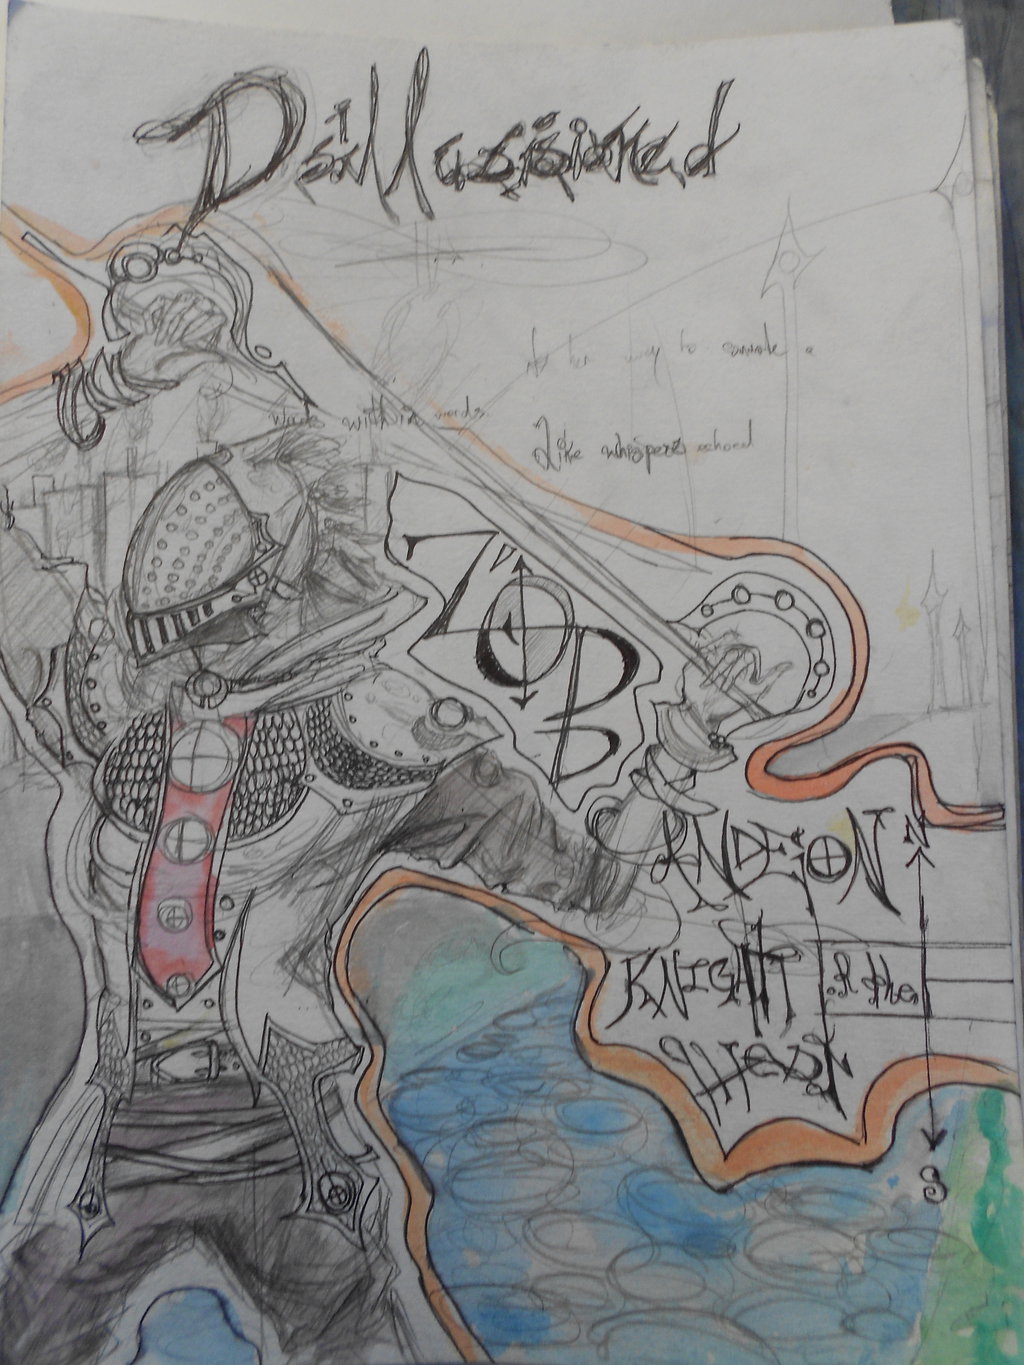 Disillusioned
to
words within words.
Like whispers echoed
ZOB
ANDEION N
KNIGHT of the
West
S